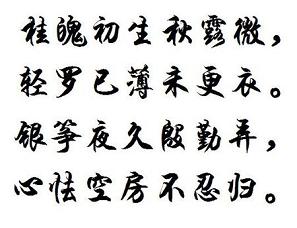 桂魄初生秋露微，
轻罗已薄未更衣。
银筝夜久殷勤弄，
心怯空房不忍归。